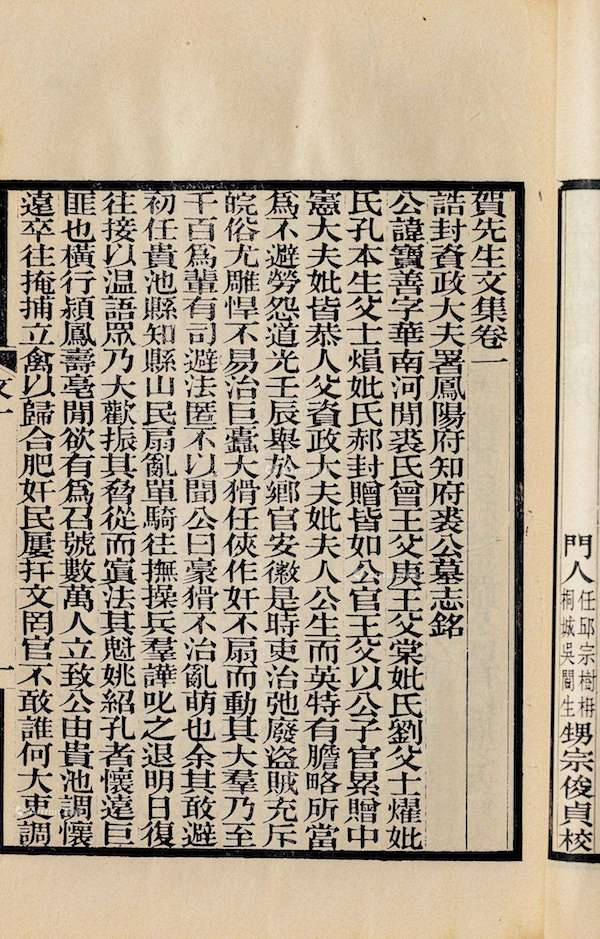 門人任邱宗樹枬桐城吳闓生甥宗俊貞校
賀先生文集卷一
誥封資政大夫署鳳陽府知府裘公墓志銘
公諱寶善字華南河閒裘氏曾王父庚王父棠妣氏劉父士燿妣
氏孔本生父士熉妣氏郝封贈皆如公官王父以公子官累贈中
憲大夫妣皆恭人父資政大夫妣夫人公生而英特有膽略所當
為不避勞怨道光壬辰舉於鄉官安徽是時吏治弛廢盜賊充斥
皖俗尤雕悍不易治巨蠹大猾任俠作奸不扇而動其大羣乃至
千百為輩有司避法匿不以聞公曰豪猾不治亂萌也余其敢避
初任貴池縣知縣山民扇亂單騎往撫操兵羣譁叱之退明日復
往接以温語眾乃大歡振其脅從而寘法其魁姚紹孔者懷遠巨
匪也橫行潁鳳壽亳閒欲有為召號數萬人立致公由貴池調懷
遠卒往掩捕立禽以歸合肥奸民屢扞文罔官不敢誰何大吏調
文一
一